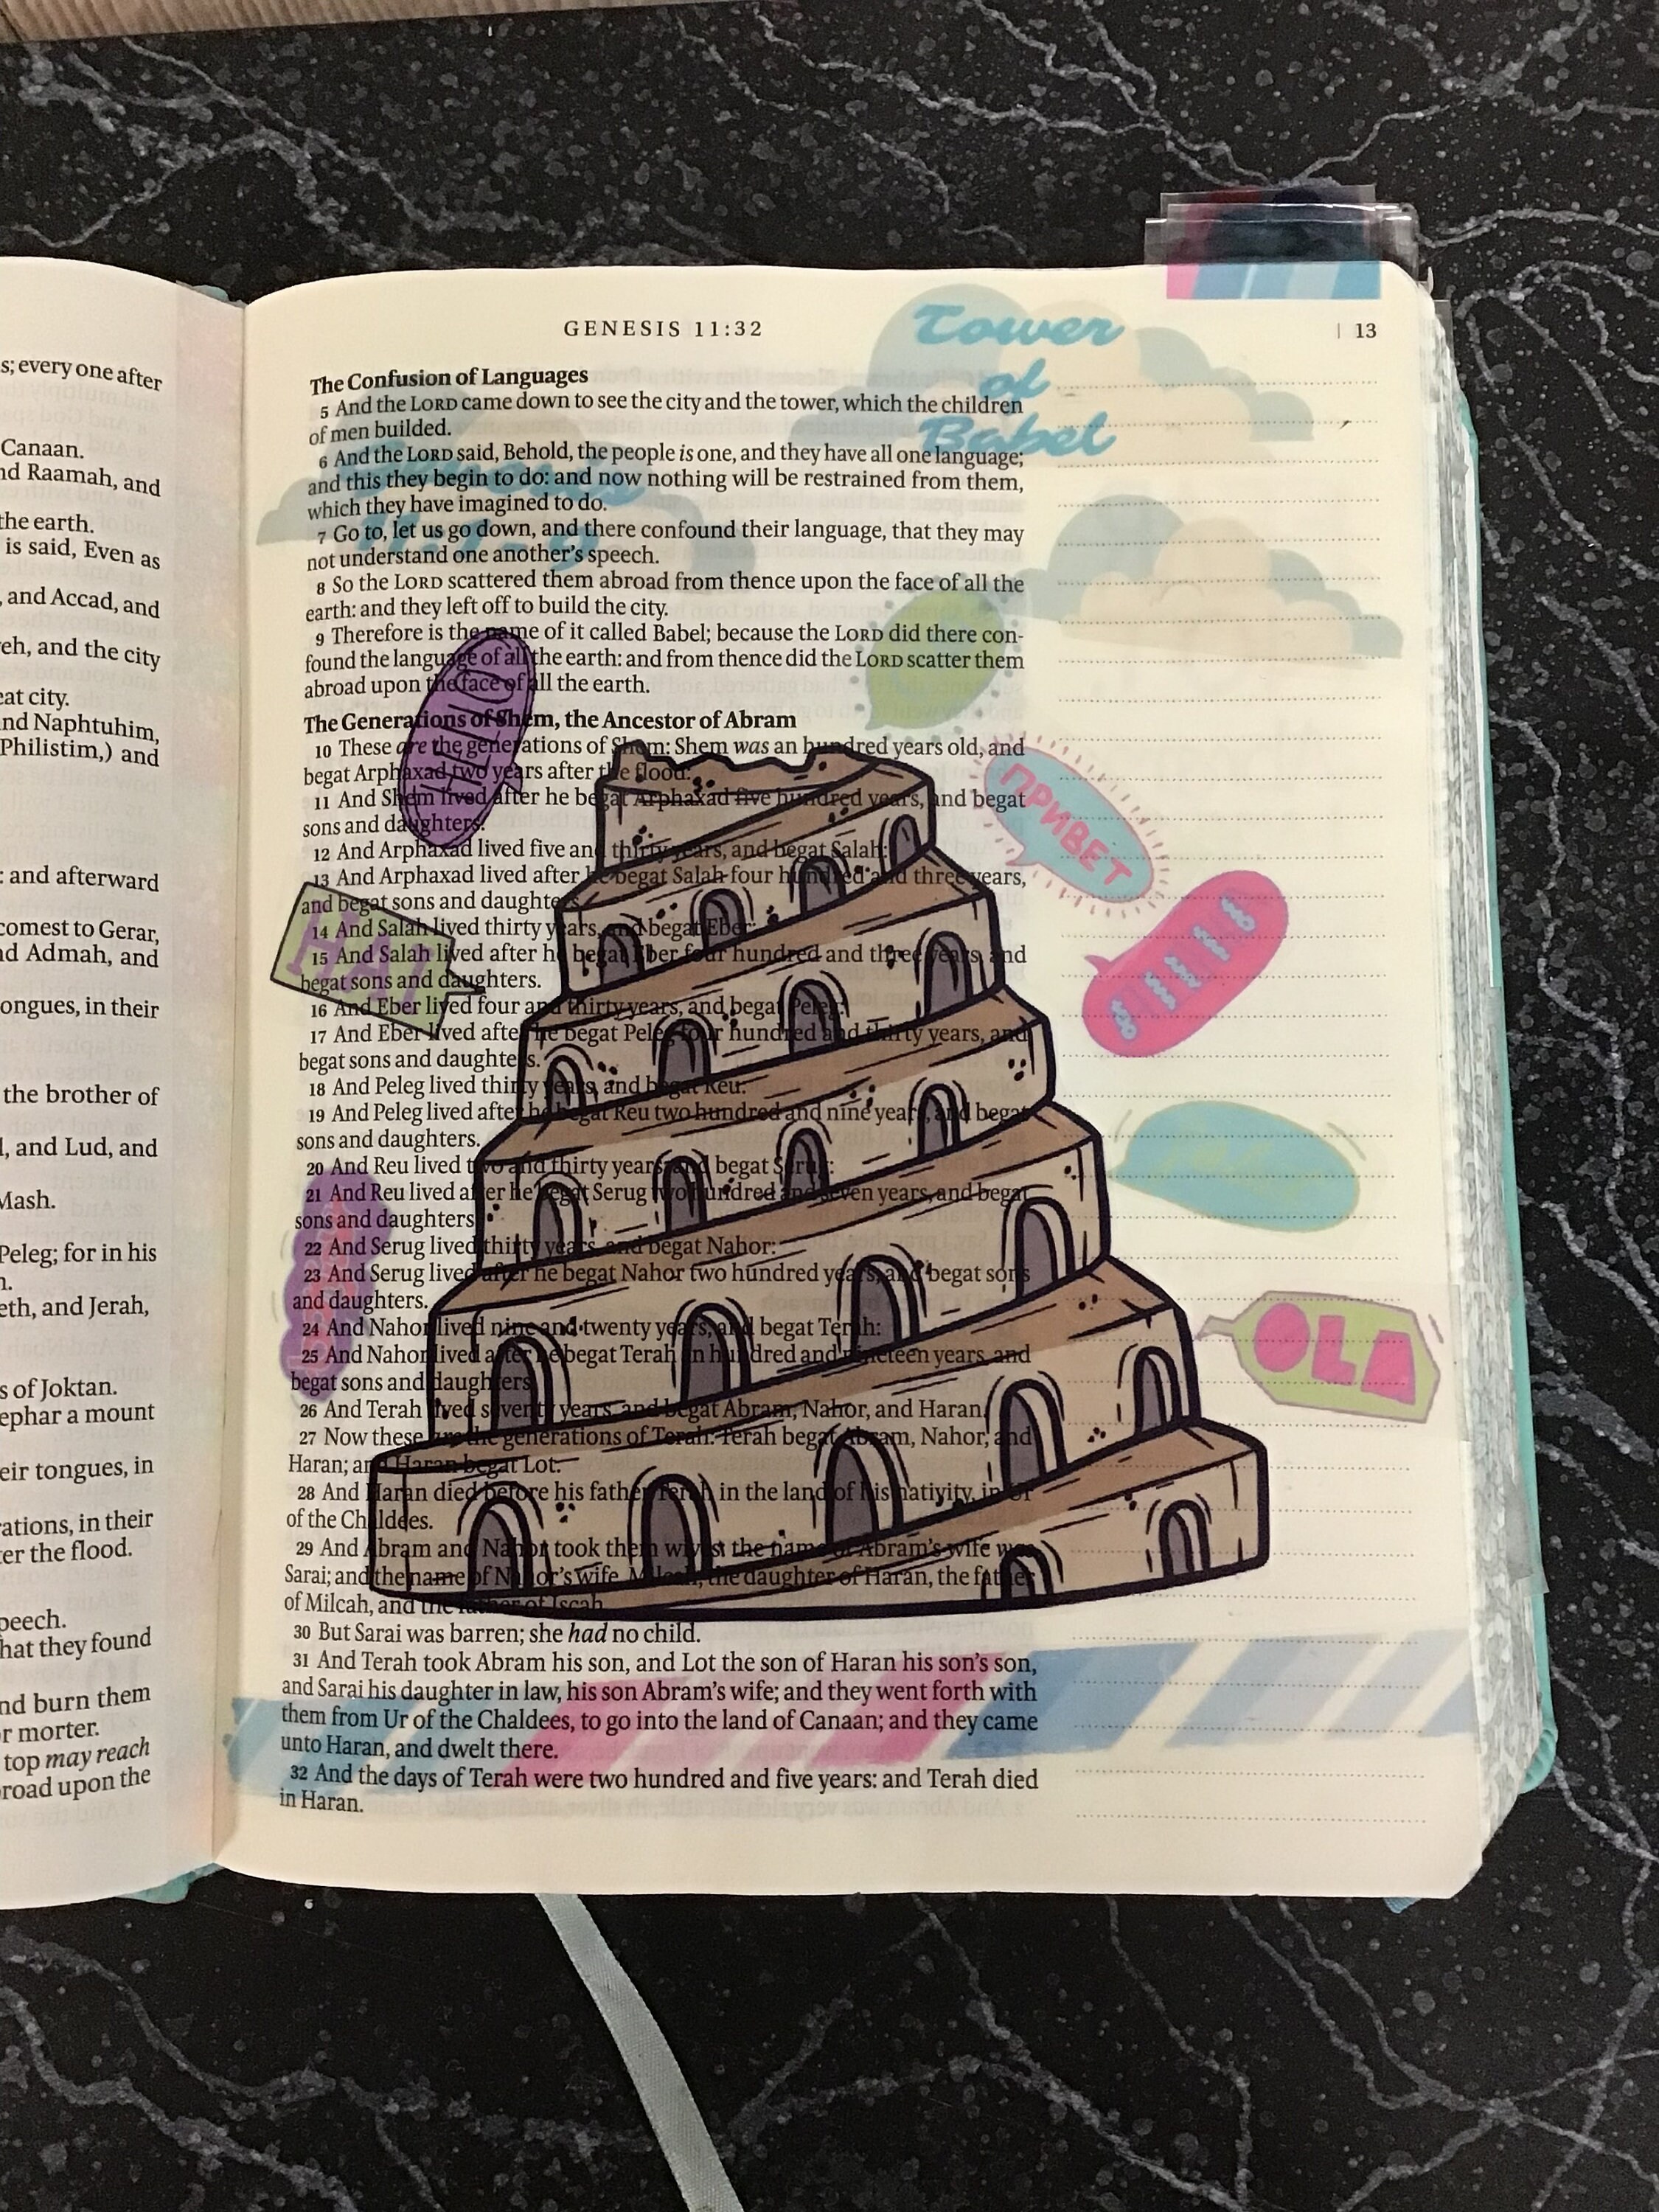 s; every one after
Canaan.
nd Raamah, and
the earth.
is said, Even as
, and Accad, and
eh, and the city
eat city.
nd Naphtuhim,
Philistim,) and
: and afterward
comest to Gerar,
nd Admah, and
ongues, in their
the brother of
l, and Lud, and
Mash.
Peleg; for in his
eth, and Jerah,
s of Joktan.
ephar a mount
eir tongues, in
ations, in their
er the flood.
peech.
hat they found
nd burn them
r morter.
top may reach
road upon the
GENESIS 11:32
| 13
Tower
of
Babel
The Confusion of Languages
5 And the LORD came down to see the city and the tower, which the children
of men builded.
6 And the LORD said, Behold, the people is one, and they have all one language;
and this they begin to do: and now nothing will be restrained from them,
which they have imagined to do.
7 Go to, let us go down, and there confound their language, that they may
not understand one another's speech.
8 So the LORD scattered them abroad from thence upon the face of all the
earth: and they left off to build the city.
9 Therefore is the name of it called Babel; because the LORD did there con-
found the language of all the earth: and from thence did the LORD scatter them
abroad upon the face of all the earth.
The Generations of Shem, the Ancestor of Abram
10 These are the generations of Shem: Shem was an hundred years old, and
begat Arphaxad two years after the flood:
11 And Shem lived after he begat Arphaxad five hundred years, and begat
sons and daughters.
12 And Arphaxad lived five and thirty years, and begat Salah:
13 And Arphaxad lived after he begat Salah four hundred and three years,
and begat sons and daughters.
14 And Salah lived thirty years, and begat Eber:
15 And Salah lived after he begat Eber four hundred and three years, and
begat sons and daughters.
16 And Eber lived four and thirty years, and begat Peleg:
17 And Eber lived after he begat Peleg four hundred and thirty years, and
begat sons and daughters.
18 And Peleg lived thirty years, and begat Reu:
19 And Peleg lived after he begat Reu two hundred and nine years, and begat
sons and daughters.
20 And Reu lived two and thirty years, and begat Serug:
21 And Reu lived after he begat Serug two hundred and seven years, and begat
sons and daughters.
22 And Serug lived thirty years, and begat Nahor:
23 And Serug lived after he begat Nahor two hundred years, and begat sons
and daughters.
24 And Nahor lived nine and twenty years, and begat Terah:
25 And Nahor lived after he begat Terah an hundred and nineteen years, and
begat sons and daughters.
26 And Terah lived seventy years, and begat Abram, Nahor, and Haran.
27 Now these are the generations of Terah: Terah begat Abram, Nahor, and
Haran; and Haran begat Lot.
28 And Haran died before his father Terah in the land of his nativity, in Ur
of the Chaldees.
29 And Abram and Nahor took them wives: the name of Abram's wife was
Sarai; and the name of Nahor's wife, Milcah, the daughter of Haran, the father
of Milcah, and the father of Iscah.
30 But Sarai was barren; she had no child.
31 And Terah took Abram his son, and Lot the son of Haran his son's son,
and Sarai his daughter in law, his son Abram's wife; and they went forth with
them from Ur of the Chaldees, to go into the land of Canaan; and they came
unto Haran, and dwelt there.
32 And the days of Terah were two hundred and five years: and Terah died
in Haran.
HELLO
HAI
ПРИВЕТ
OLA